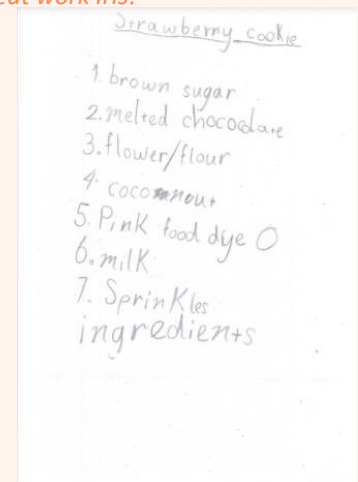 eat work Iris!
Strawberry cookie
1. brown sugar
2. melted chocodate
3. flower/flour
4. coconout
5. Pink food dye O
6. milk
7. Sprinkles
ingredients